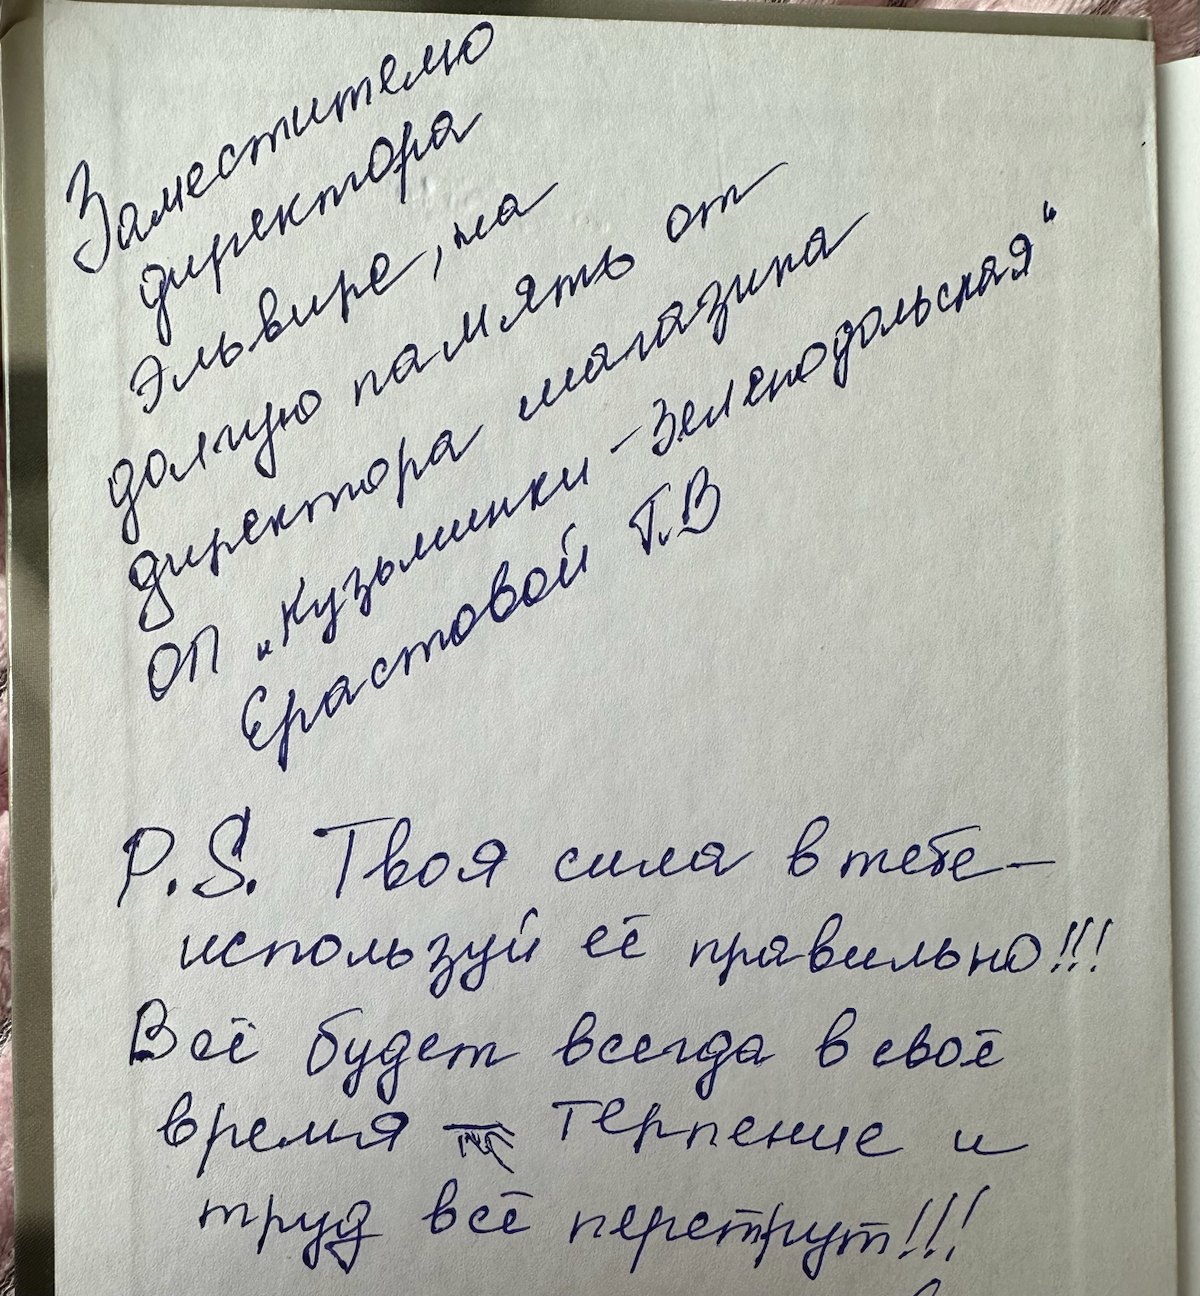 Заместителю
директора
Эльвире, на
долгую память от
директора магазина
ОП „Кузьминки-Зеленодольская"
Ерастовой Т.В
P.S. Твоя сила в тебе —
используй её правильно!!!
Всё будет всегда в своё
время — Терпение и
труд всё перетрут!!!